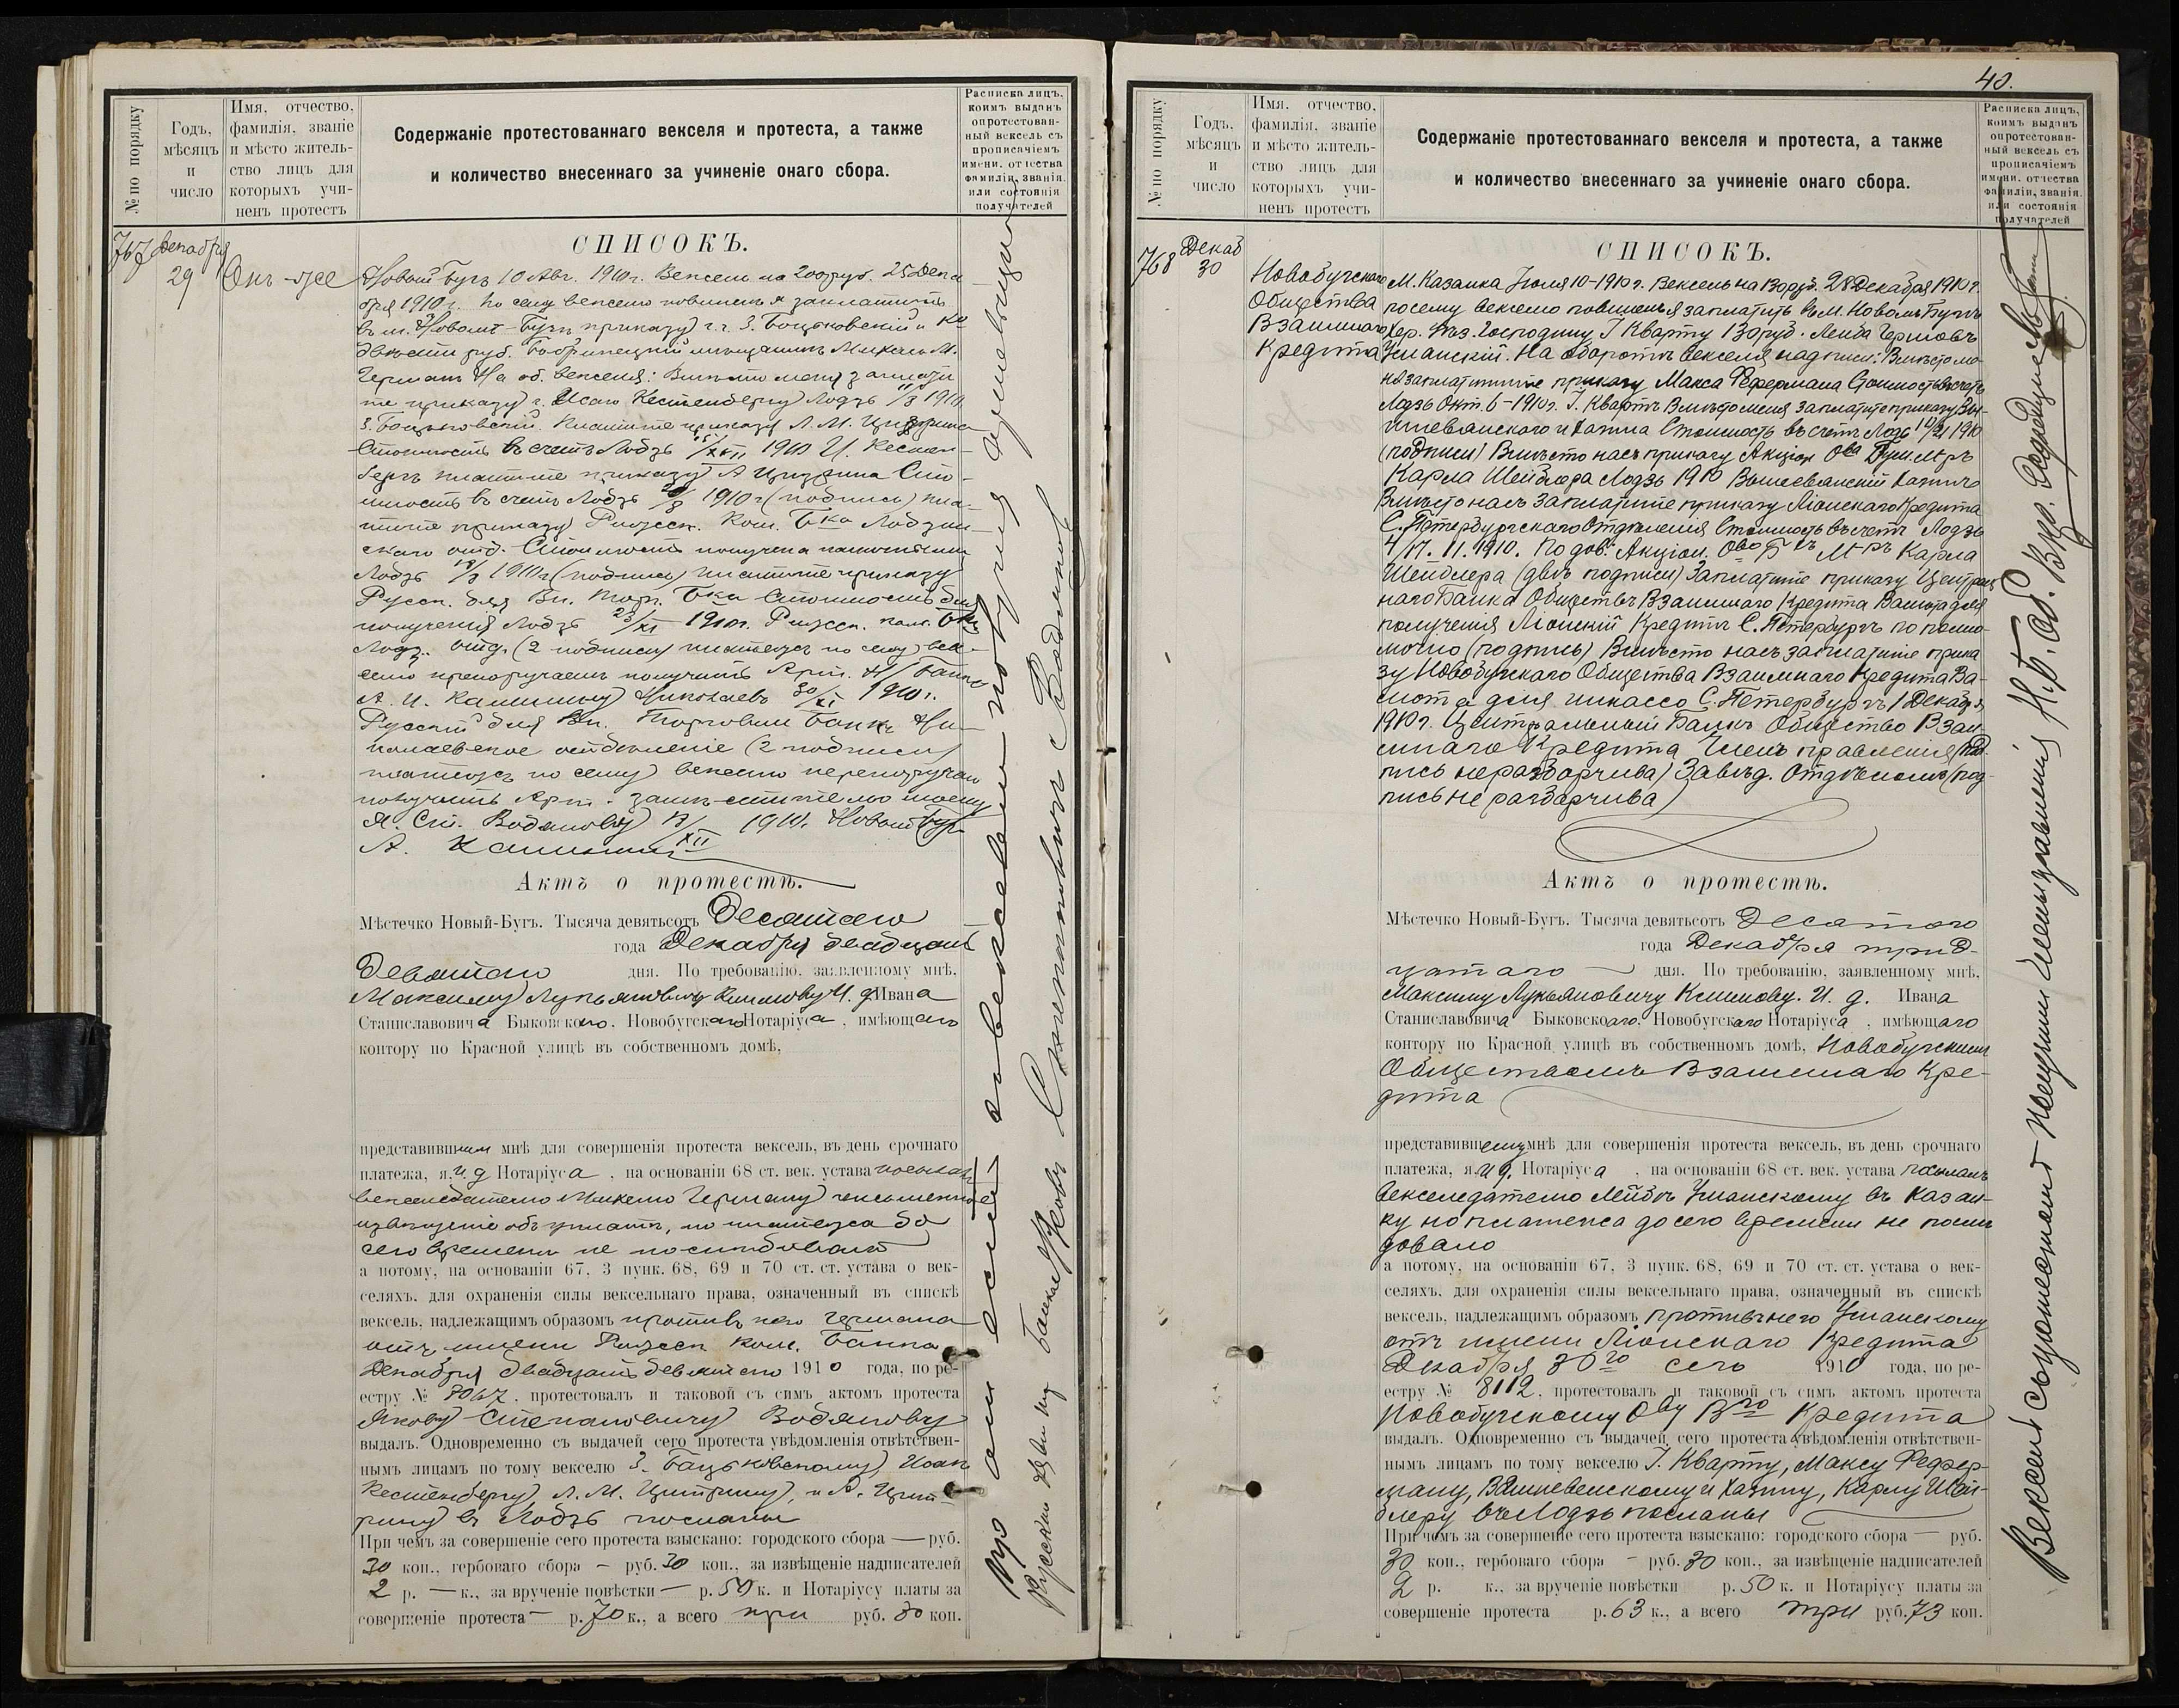 № по порядку
Годъ,
мѣсяцъ
и
число
Имя, отчество,
фамилія, званіе
и мѣсто житель-
ство лицъ для
которыхъ учи-
ненъ протестъ
Содержаніе протестованнаго векселя и протеста, а также
и количество внесеннаго за учиненіе онаго сбора.
Расписка лицъ,
коимъ выданъ
опротестован-
ный вексель съ
прописаніемъ
имени, отчества
фамиліи, званія,
или состоянія
получателей
767 Декабря
29
Онъ-же
СПИСОКЪ.
Новый Бугъ 10 Авг. 1910 г. Вексель на 200 руб. 25 Дека
бря 1910 г. По сему векселю повиненъ я заплатить
въ м. Новомъ-Бугѣ приказу г.г. З. Боцьковскій и Ко
двѣсти руб. Бобринецкій мѣщанинъ Михель М.
Германъ На об. векселя: Вмѣсто меня заплати
те приказу г. Исаю Кестенбергу Лодзь 1910
З. Боцьковскій. Платите приказу Л. М. Цитрина
Стоимость въ счетъ Лодзь 1910 И. Кестен-
бергъ платите приказу А Цитрина Сто-
имость въ счетъ Лодзь 1910 г (подпись) пла-
тите приказу Русск. Ком. Бка Лодзин-
скаго отд. Стоимость получена
Лодзь 1910 г (подпись) платите приказу
Русск. для Вн. Торг. Бка Стоимость для
полученія Лодзь 23/XI 1910 г. Русск. Ком. Бка
Лодз. отд. (2 подписи) платежъ по сему век-
селю препоручаемъ получить Арт. Н/Банка
А. И. Калинину Николаевъ 30/XI 1910 г.
Русскій для Вн. Торговли Банкъ Ни-
колаевское отдѣленіе (2 подписи)
платежъ по сему векселю перепоручаю
получить Арт. замѣстителю моему
Я. Ст. Водянову 1910. Новый Бугъ
А. Калининъ
Актъ о протестѣ.
Мѣстечко Новый-Бугъ. Тысяча девятьсотъ Десятаго
года Декабря двадцать
Девятаго дня. По требованію, заявленному мнѣ,
Максиму Лукьяновичу Климову И. д. Ивана
Станиславовича Быковскаго, Новобугскаго Нотаріуса, имѣющаго
контору по Красной улицѣ въ собственномъ домѣ,
представившимъ мнѣ для совершенія протеста вексель, въ день срочнаго
платежа, я, И д Нотаріуса, на основаніи 68 ст. век. устава посылалъ
векселедателю Михелю Герману письменное
извѣщеніе объ уплатѣ, но платежа до
сего времени не послѣдовало
а потому, на основаніи 67, 3 пунк. 68, 69 и 70 ст. ст. устава о век-
селяхъ, для охраненія силы вексельнаго права, означенный въ спискѣ
вексель, надлежащимъ образомъ противъ него Германа
отъ имени Русск Ком. Банка
Декабря двадцать девятаго 1910 года, по ре-
естру № 8047, протестовалъ и таковой съ симъ актомъ протеста
Якову Степановичу Водянову
выдалъ. Одновременно съ выдачей сего протеста увѣдомленія отвѣтствен-
нымъ лицамъ по тому векселю З. Боцьковскому, Исаю
Кестенбергу, Л. М. Цитрину, и А. Цит-
рину въ Лодзь посланы
При чемъ за совершеніе сего протеста взыскано: городского сбора — руб.
30 коп., гербоваго сбора – руб. 30 коп., за извѣщеніе надписателей
2 р. — к., за врученіе повѣстки — р. 50 к. и Нотаріусу платы за
совершеніе протеста — р. 70 к., а всего три руб. 80 коп.
Яковъ Степановичъ Водяновъ
40.
№ по порядку
Годъ,
мѣсяцъ
и
число
Имя, отчество,
фамилія, званіе
и мѣсто житель-
ство лицъ для
которыхъ учи-
ненъ протестъ
Содержаніе протестованнаго векселя и протеста, а также
и количество внесеннаго за учиненіе онаго сбора.
Расписка лицъ,
коимъ выданъ
опротестован-
ный вексель съ
прописаніемъ
имени, отчества
фамиліи, званія,
или состоянія
получателей
768 Декаб
30
Новобугскаго
Общества
Взаимнаго
Кредита
СПИСОКЪ.
М. Казанка Іюля 10-1910 г. Вексель на 130 руб. 28 Декабря 1910 г.
по сему векселю повиненъ я заплатить въ м. Новомъ Бугѣ
Хер. Господину І Кварту 130 руб. Лейба Герцовъ
Уманскій. На оборотѣ векселя надписи: Вмѣсто ме-
ня заплатите приказу Макса Федермана Стоимость въ счетъ
Лодзь Окт. 6-1910 г. І. Квартъ Вмѣсто меня заплатите приказу Вы-
шевянскаго и Хаима Стоимость въ счетъ Лодзь 1910
(подписи) Вмѣсто насъ приказу Акціон Ова Бум М-ръ
Карла Шейблера Лодзь 1910 Вышевянскій Хаимъ
Вмѣсто насъ заплатите приказу Ліонскаго Кредита
С. Петербургскаго Отдѣленія Стоимость въ счетъ Лодзь
4/17. 11. 1910. По дов. Акціон. Ово Б М-ръ Карла
Шейблера (двѣ подписи) Заплатите приказу Централь
наго Банка Обществъ Взаимнаго Кредита Валюта для
полученія Ліонскій Кредитъ С. Петербургъ по полно-
мочію (подпись) Вмѣсто насъ заплатите прика
зу Новобугскаго Общества Взаимнаго Кредита Ва-
люта для инкассо С. Петербургъ 1 Декабря
1910 г. Центральный Банкъ Общество Взаи
мнаго Кредита Членъ правленія (под-
пись неразборчива) Завѣд. Отдѣломъ (под-
пись не разборчива)
Актъ о протестѣ.
Мѣстечко Новый-Бугъ. Тысяча девятьсотъ Десятаго
года Декабря трид-
цатаго дня. По требованію, заявленному мнѣ,
Максиму Лукьяновичу Климову. И. д. Ивана
Станиславовича Быковскаго, Новобугскаго Нотаріуса, имѣющаго
контору по Красной улицѣ въ собственномъ домѣ, Новобугскимъ
Обществомъ Взаимнаго Кре-
дита
представившему мнѣ для совершенія протеста вексель, въ день срочнаго
платежа, я, И д. Нотаріуса, на основаніи 68 ст. век. устава посылалъ
векселедателю Лейбѣ Уманскому въ Казан-
ку но платежа до сего времени не послѣ
довало
а потому, на основаніи 67, 3 пунк. 68, 69 и 70 ст. ст. устава о век-
селяхъ, для охраненія силы вексельнаго права, означенный въ спискѣ
вексель, надлежащимъ образомъ противъ него Уманскому
отъ имени Ліонскаго Кредита
Декабря 30го сего 1910 года, по ре-
естру № 8112, протестовалъ и таковой съ симъ актомъ протеста
Новобугскому Ову Вго Кредита
выдалъ. Одновременно съ выдачей сего протеста увѣдомленія отвѣтствен-
нымъ лицамъ по тому векселю І. Кварту, Максу Федер-
ману, Вышевенскому и Хаиму, Карлу Шей-
блеру въ Лодзь посланы
При чемъ за совершеніе сего протеста взыскано: городского сбора — руб.
30 коп., гербоваго сбора – руб. 30 коп., за извѣщеніе надписателей
2 р. к., за врученіе повѣстки р. 50 к. и Нотаріусу платы за
совершеніе протеста р. 63 к., а всего три руб. 73 коп.